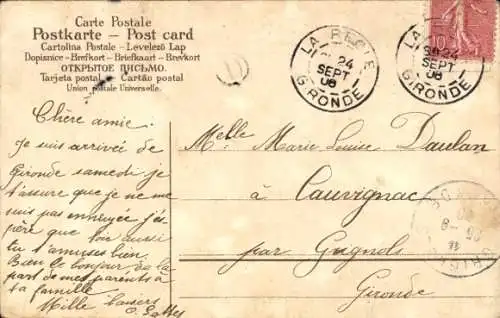 Carte Postale
Postkarte - Post card
Cartolina Postale - Levelező Lap
Dopisnice - Brefkort - Briefkaart - Brevkort
ОТКРЫТОЕ ПИСЬМО.
Tarjeta postal - Cartão postal
Union postale Universelle.
LA REOLE
24
SEPT
06
GIRONDE
LA
24
SEPT
06
GIRONDE
10
Chère amie.
Je suis arrivée de
Gironde samedi je
t'assure que je ne me
suis pas ennuyée j'es
père que toi aussi
tu t'amuses bien
Bien le bonjour de la
part de mes parents à
ta famille
Mille baisers
Melle Marie Louise Daulan
à Cauvignac
par Grignols
Gironde